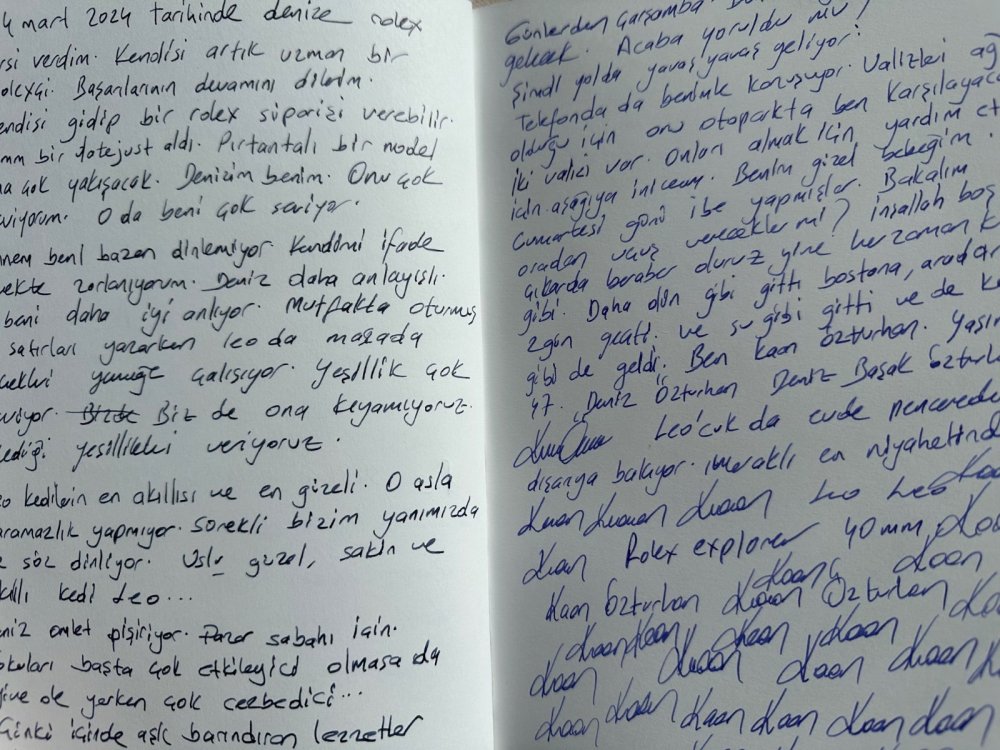 4 mart 2024 tarihinde denize rolex
rsi verdim. Kendisi artık uzman bir
olexçi. Başarılarının devamını dilerim.
endisi gidip bir rolex siparişi verebilir.
mm bir datejust aldı. Pırtantalı bir model
na çok yakışacak. Denizim benim. Onu çok
viyorum. O da beni çok seviyor.
nnem beni bazen dinlemiyor Kendimi ifade
mekte zorlanıyorum. Deniz daha anlayışlı.
beni daha iyi anlıyor. Mutfakta oturmuş
satırları yazarken leo da masada
çekleri yemeğe çalışıyor. Yeşillik çok
viyor. Bizde Biz de ona kıyamıyoruz.
ediği yeşillikleri veriyoruz.
eo kedilerin en akıllısı ve en güzeli. O asla
aramazlık yapmıyor. Sürekli bizim yanımızda
z söz dinliyor. Uslu güzel, sakin ve
kıllı kedi Leo...
eniz omlet pişiriyor. Pazar sabahı için.
okuları başta çok etkileyici olmasa da
yine de yerken çok cezbedici...
Çünki içinde aşk barındıran lezzetler
Günlerden Çarşamba.
gelecek. Acaba yoruldu mu?
Şimdi yolda yavaş yavaş geliyor.
Telefonda da benimle konuşuyor. Valizleri ağ
olduğu için onu otoparkta ben karşılayaca
iki valizi var. Onları almak için yardım et
için aşağıya inicem. Benim güzel bebeğim.
Cumartesi günü ibe yapmışlar. Bakalım
oradan vavs verecekler mi? inşallah boş
çıkarda beraber duruz yine herzaman k
gibi. Daha dün gibi gitti bostona, aradan
2 gün geçti. ve su gibi gitti ve de k
gibi de geldi. Ben Kaan Özturhan. Yaşım
47. Deniz Özturhan Deniz Başak Özturh
Leo'cuk da evde pencereden
dışarıya bakıyor. meraklı en niyahetinde
Kaan Kaaan Kaaan Leo Leo Kaan
Kaan Rolex explorer 40 mm Kaan
Kaan Özturhan Kaan Özturhan
Kaan Kaan Kaan
Kaan Kaan Kaan Kaan
Kaan Kaan Kaan Kaan
Kaan Kaan Kaan Kaan Kaan Kaan